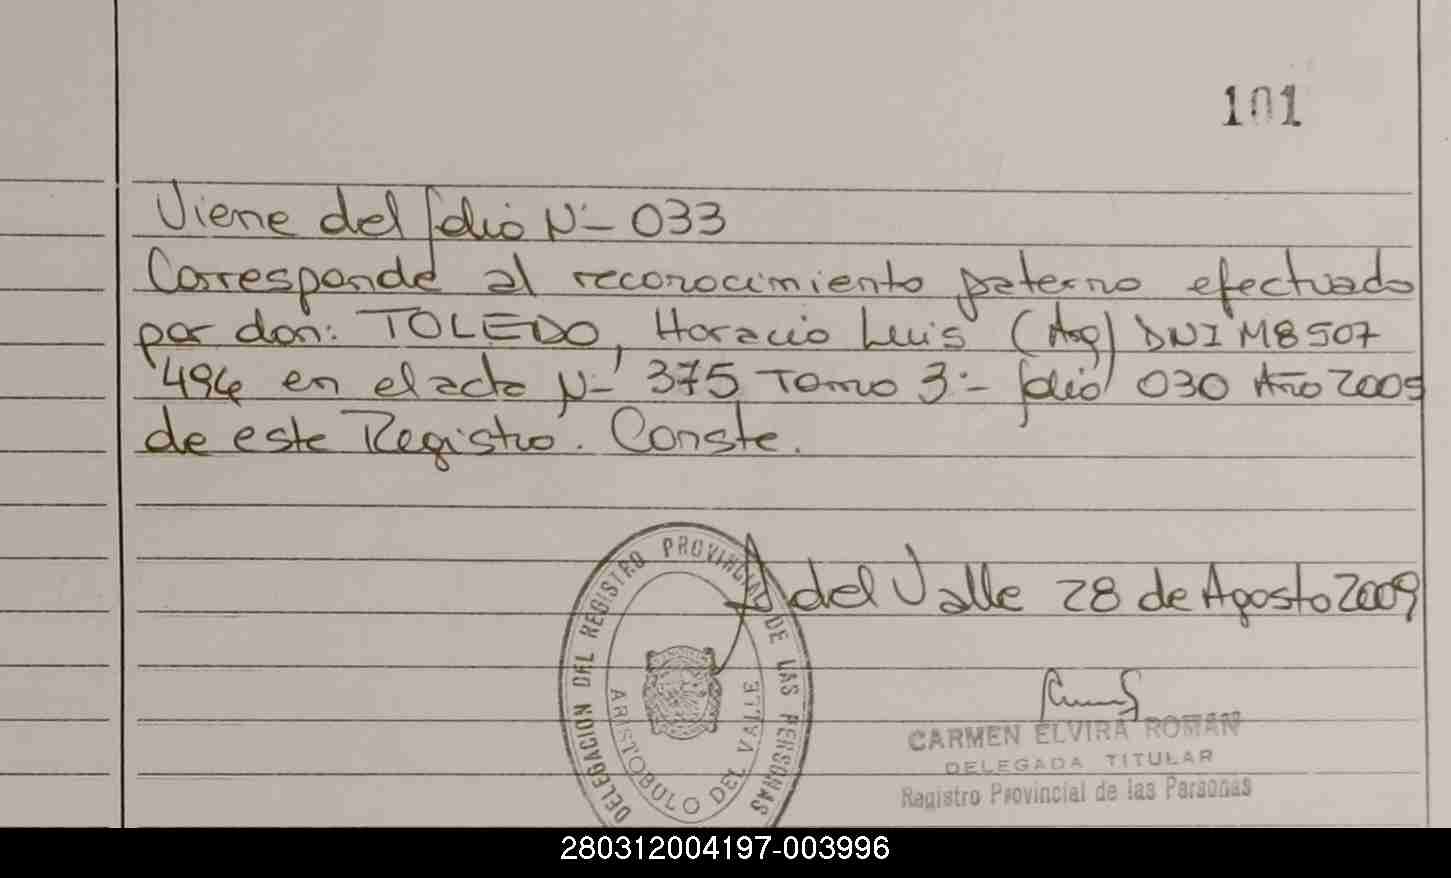 101
Viene del folio Nº 033
Corresponde al reconocimiento paterno efectuado
por don: TOLEDO, Horacio Luis (Arg) DNI M8507
494 en el acta Nº 375 Tomo 3º- folio 030 Año 2009
de este Registro. Conste.
A del Valle 28 de Agosto 2009
DELEGACION DEL REGISTRO PROVINCIAL DE LAS PERSONAS
ARISTOBULO DEL VALLE
CARMEN ELVIRA ROMAN
DELEGADA TITULAR
Registro Provincial de las Personas
280312004197-003996